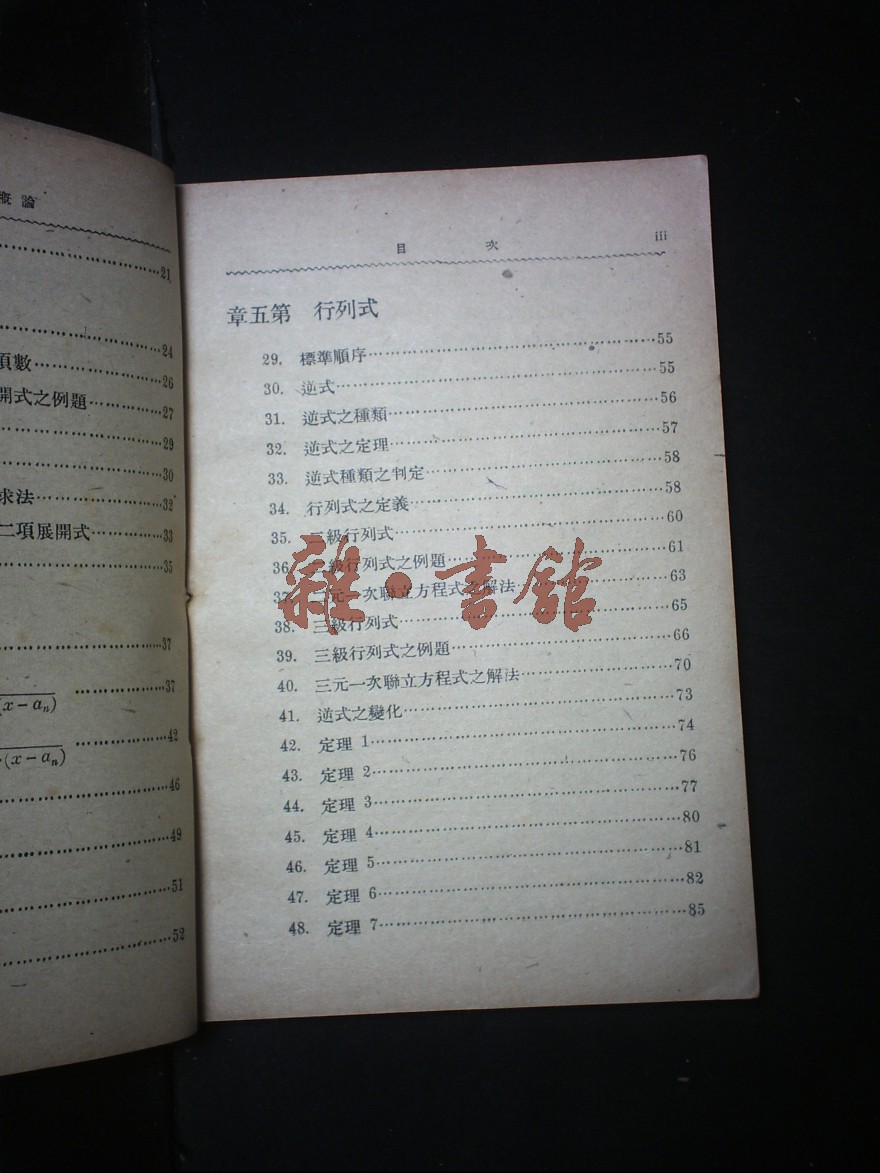 概論
21
24
項數 26
開式之例題 27
29
30
求法 32
二項展開式 33
35
37
(x − aₙ) 37
·(x − aₙ) 42
46
49
51
52
目 次 iii
章五第 行列式
29. 標準順序 55
30. 逆式 55
31. 逆式之種類 56
32. 逆式之定理 57
33. 逆式種類之判定 58
34. 行列式之定義 58
35. 級行列式 60
36. 級行列式之例題 61
37. 元一次聯立方程式之解法 63
38. 三級行列式 65
39. 三級行列式之例題 66
40. 三元一次聯立方程式之解法 70
41. 逆式之變化 73
42. 定理 1 74
43. 定理 2 76
44. 定理 3 77
45. 定理 4 80
46. 定理 5 81
47. 定理 6 82
48. 定理 7 85
雜·書館